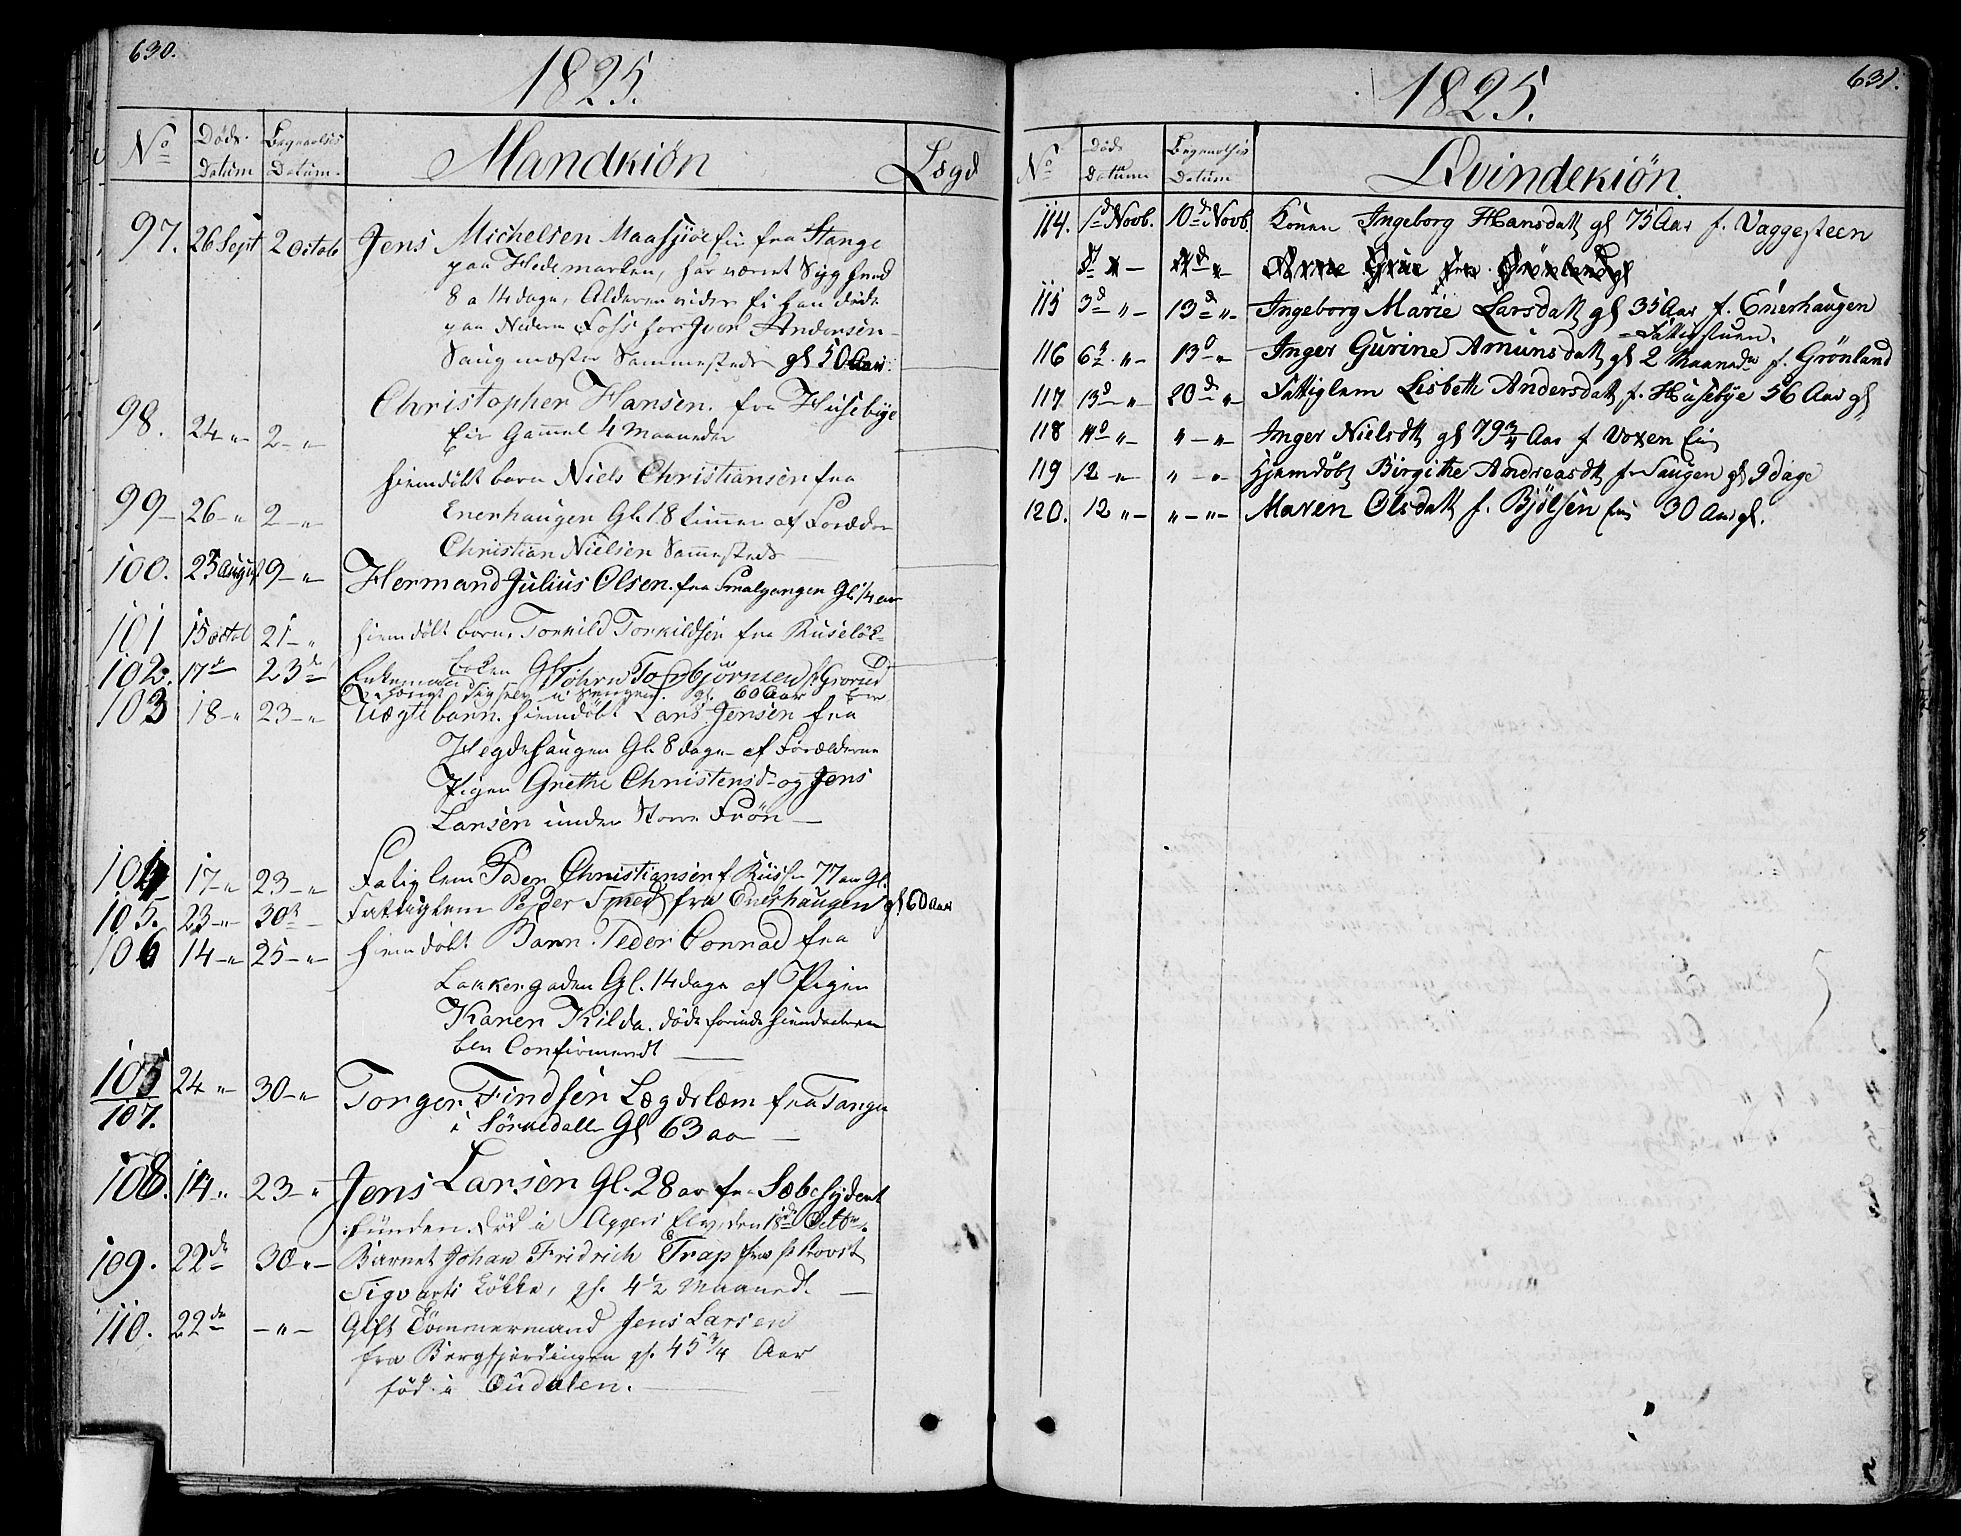 630.
1825.
No Døds Datum Begravelses Datum Mandkiön Lægd
97. 26 Sept 2 Octob Jens Michelsen Maasiöe fra Stange
paa Hedemarken, har været Syg
8 a 14 dage,
paa Nedre Foss hos Iver Andersen
Saugmester Sammesteds gl 50 Aar
98. 24 - " 2 - " Christopher Hansen. fra Husebye
Eie Gammel 4 Maaneder
hiemdöbt barn Niels Christiansen fra
99 - 26 - " 2 - " Enerhaugen Gl. 18 timer af Foræld
Christian Nielsen Sammesteds
100. 25 August 9 - " Hermand Julius Olsen. fra Smalgangen Gl. 14
101 15 octob 21 - " hiemdöbt barn Torkild Torkildsen fra Ruselök
102. 17 d 23 d Enkemand Torbjörnsen f Grorud
Hængt sig selv i Sengen. gl. 60 Aar
103 18 - " 23 - " Uægte barn. hiemdöbt Lars Jensen fra
Hegdehaugen Gl. 8 dage af Forældrene
Pigen Grethe Christensd og Jens
Larsen under Store Frön
104 17 - " 23 - " Fatiglem Peder Christiansen f 77 aar Gl.
105. 23 - " 30 Fattiglem Peder Smed fra Enerhaugen gl 60 Aar
106 14 - " 25 - " hiemdöbt Barn Peder Conrad fra
Lakkergaden Gl. 14 dage af Pigen
Karen Kilda. döde forinden
blev Confirmeret
105
107. 24 - " 30 - " Torger Findsen Lægdslem fra Tangen
i Sörkedalen Gl 63 aar
108. 14 - " 23 - " Jens Larsen Gl. 28 aar fra Sæbesyderiet
funden död i Aggers Elv, den 18de Octbr.
109. 22 de 30 - " Barnet Johan Fridrich Trap fra Provst
Sigvarts Lökke, gl. 4 1/2 Maaned.
110. 22 de - " - Gift Tömmermand Jens Larsen
fra Bergfjerdingen gl. 45 3/4 Aar
föd i Oudalen.
631.
1825.
No Döds Datum Begravelses Datum Qvindekiön
114. 1 d Novb. 10 d Novb. Konen Ingeborg Hansdatt gl 75 Aar f. Vaggesteen
115 3 d " - 13 d " - Ingeborg Marie Larsdatt gl 35 Aar f. Enerhaugen
Fatigstuen.
116 6 " - 13 d - " Inger Gurine Amunsdatt gl 2 Maaneder f. Grönland
117 13 d " 20 d " Fattiglem Lisbeth Andersdatt f. Husebye 56 Aar gl
118 " - " - " Inger Nielsdt gl 79 3/4 Aar f Voxen Eie
119 12 - " " - " Hjemdöbt Birgithe Andreasdt f. Saugen gl 9 dage
120. 12 " - " - " - Maren Olsdatt f. Bjölsen Eie 30 Aar gl.